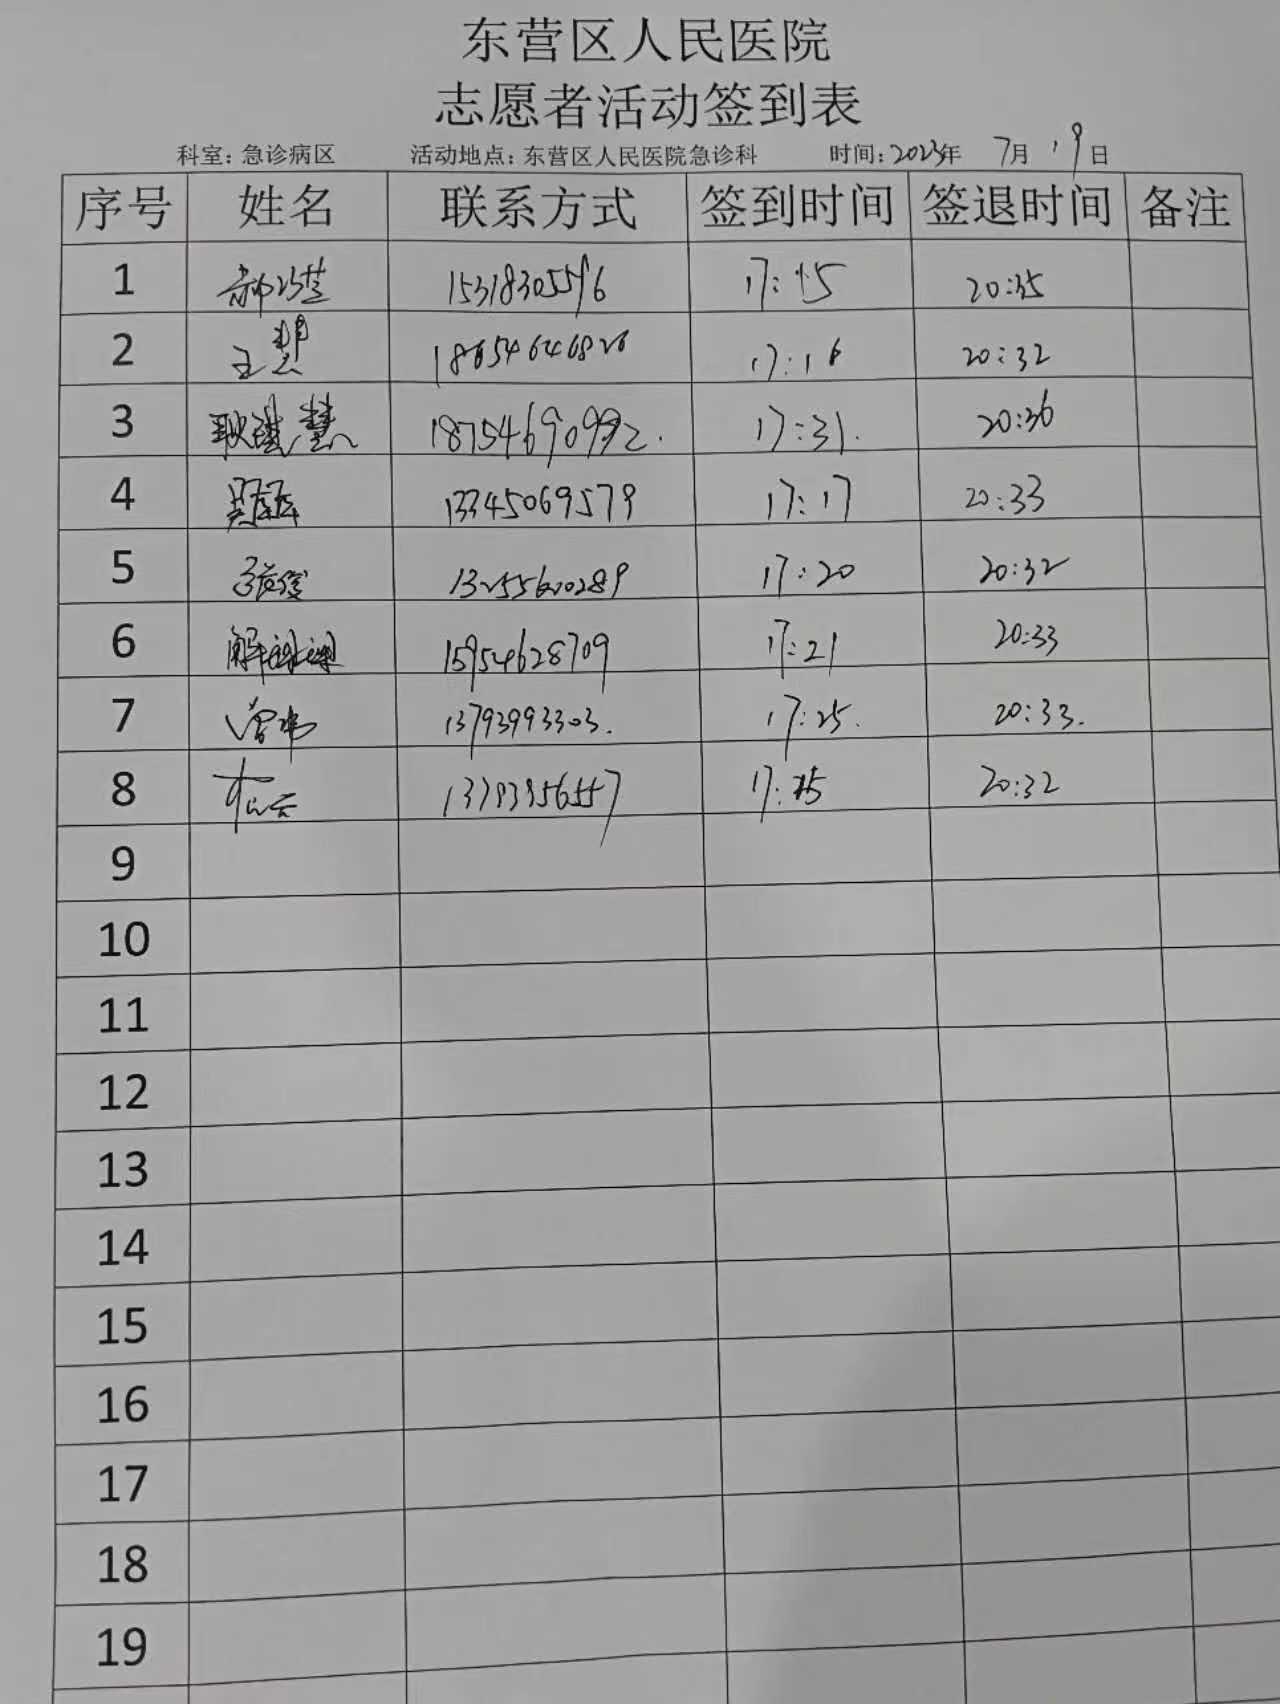 东营区人民医院
志愿者活动签到表
科室：急诊病区 活动地点：东营区人民医院急诊科 时间：2023年 7月 19日
序号 姓名 联系方式 签到时间 签退时间 备注
1 15318305596 17:15 20:35
2 王慧 18654646826 17:16 20:32
3 耿璐慧 18754690992. 17:31. 20:36
4 13345069579 17:17 20:33
5 13255620289 17:20 20:32
6 解琳琳 15954628709 17:21 20:33
7 曾伟 13793993303. 17:25. 20:33.
8 17:25 20:32
9
10
11
12
13
14
15
16
17
18
19